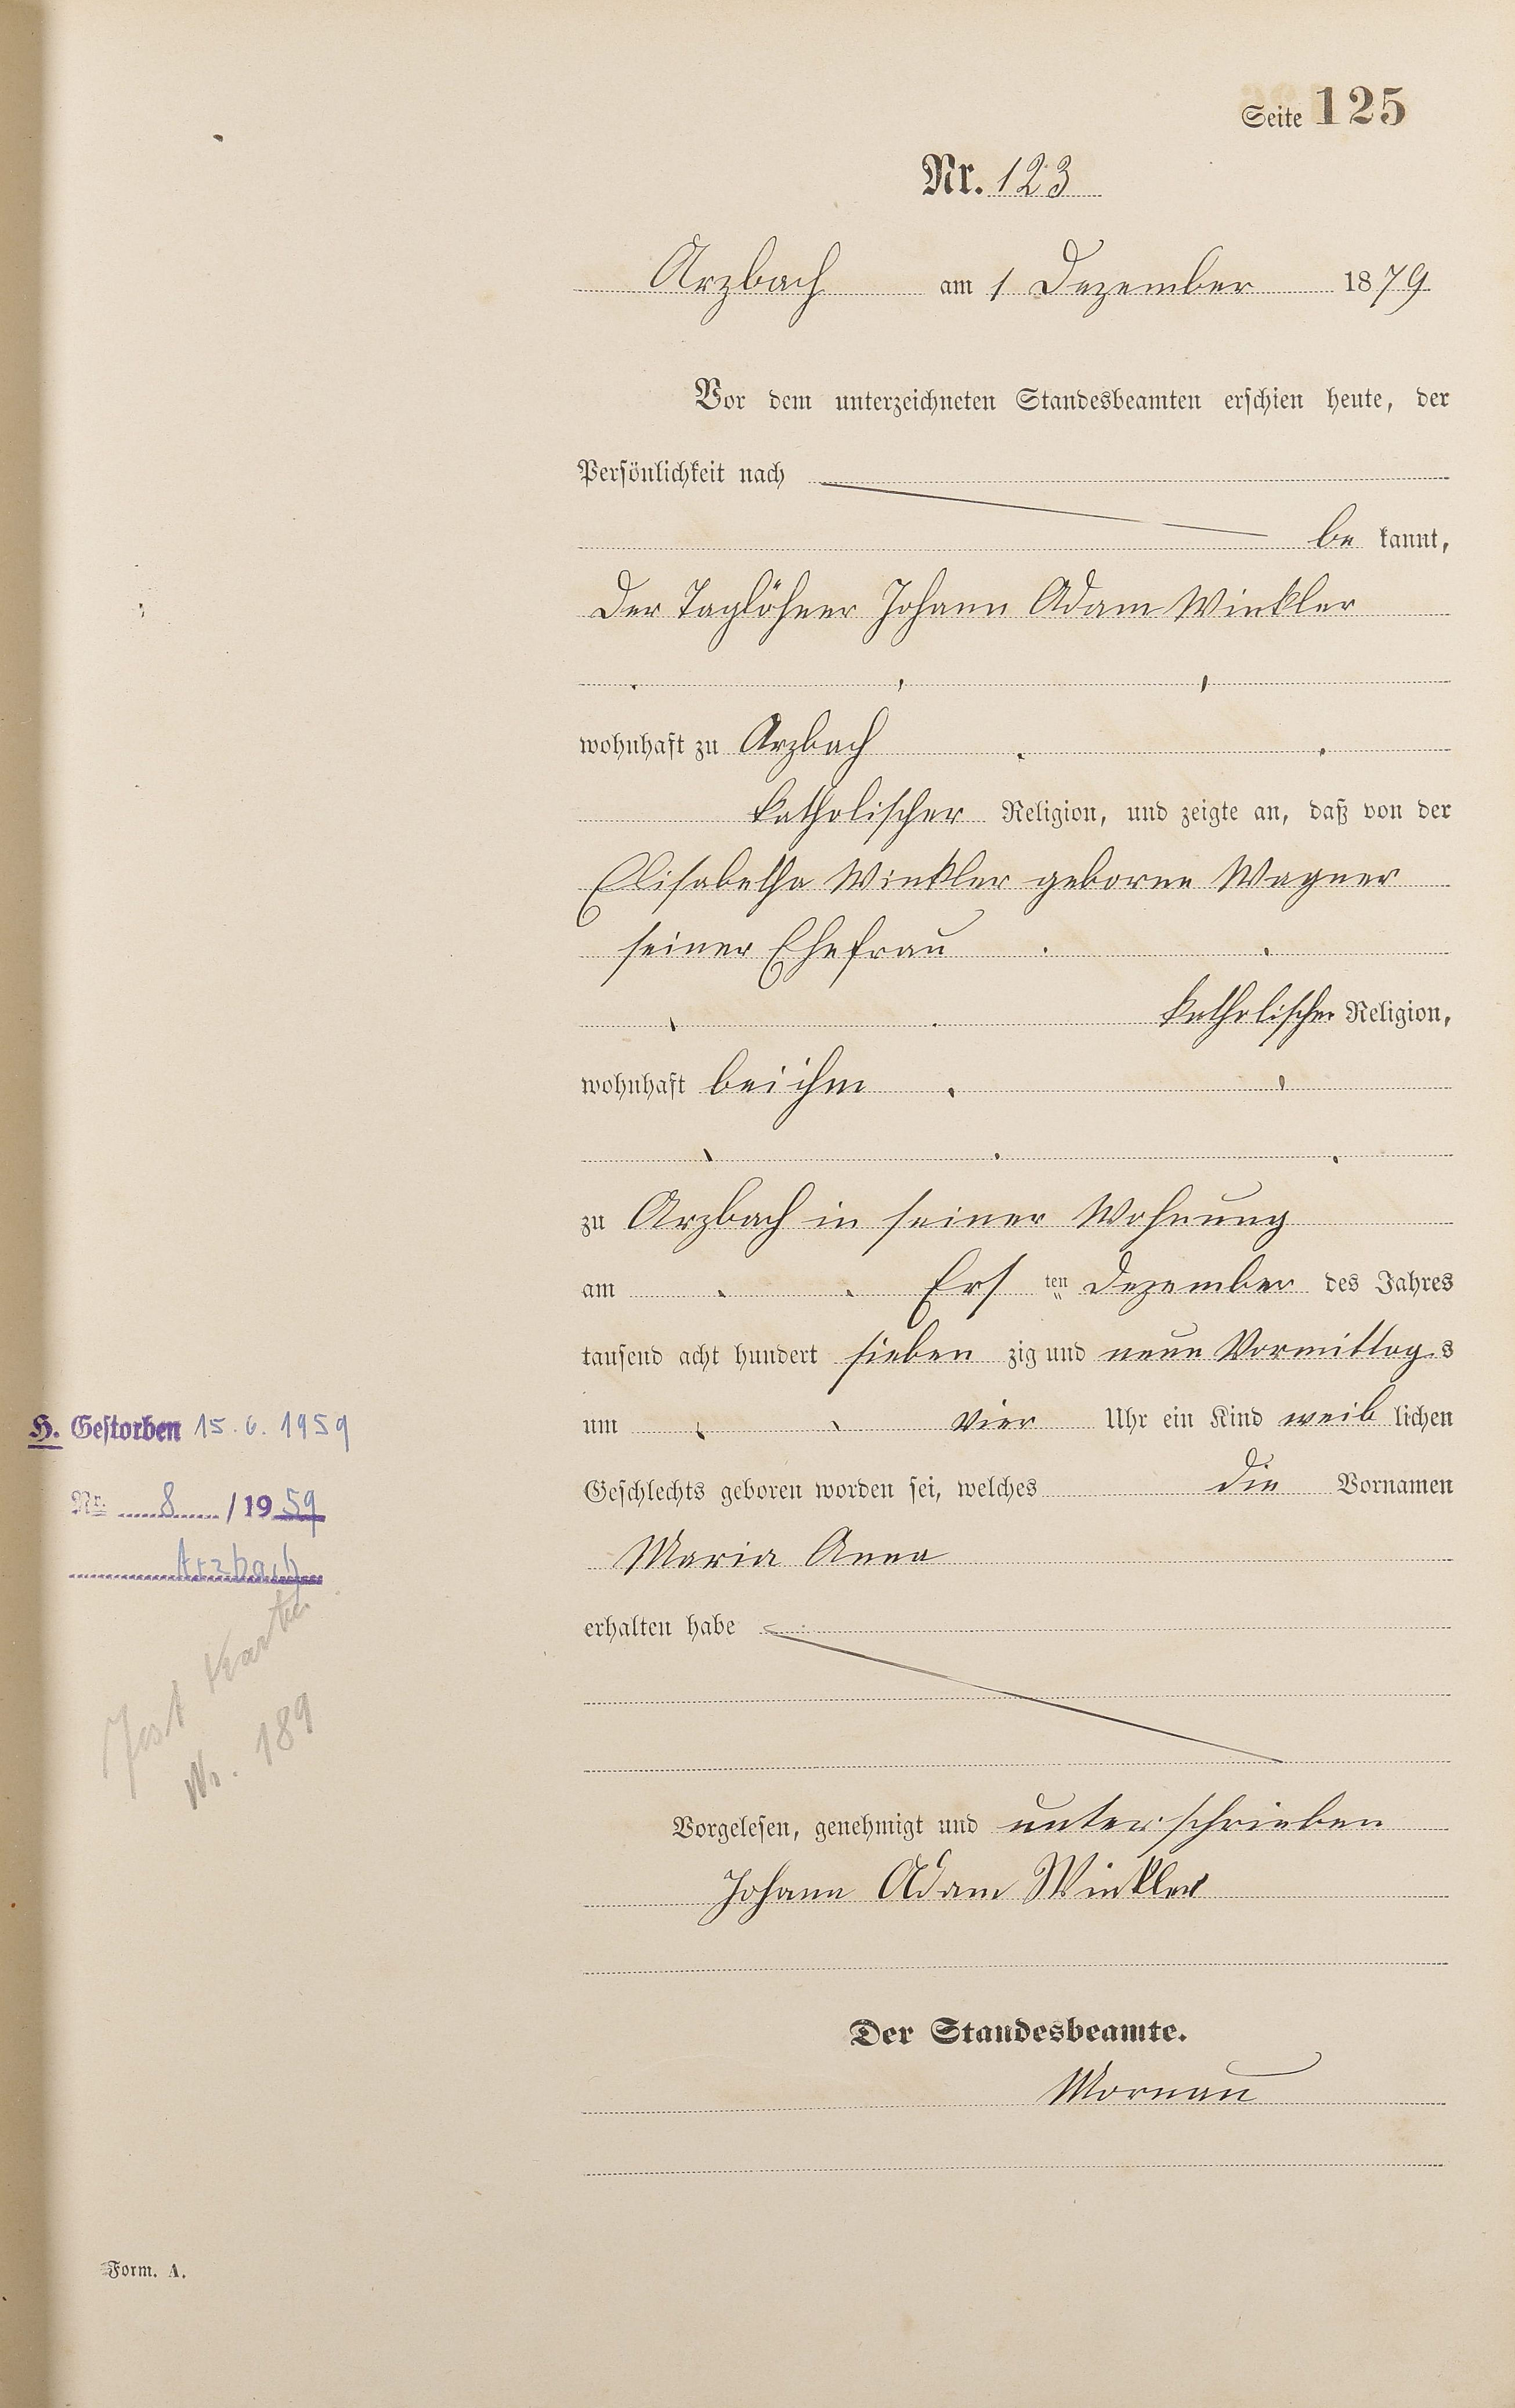 Seite 125
Nr. 123
Arzbach am 1 Dezember 1879
Vor dem unterzeichneten Standesbeamten erschien heute, der
Persönlichkeit nach
be kannt,
der Taglöhner Johann Adam Winkler
wohnhaft zu Arzbach
katholischer Religion, und zeigte an, daß von der
Elisabetha Winkler geborne Wagner
seiner Ehefrau
katholischer Religion,
wohnhaft bei ihm
zu Arzbach in seiner Wohnung
am Ers ten Dezember des Jahres
tausend acht hundert sieben zig und neun Vormittags
um vier Uhr ein Kind weib lichen
Geschlechts geboren worden sei, welches die Vornamen
Maria Anna
erhalten habe
Vorgelesen, genehmigt und unterschrieben
Johann Adam Winkler
Der Standesbeamte.
H. Gestorben 15.6.1959
Nr. 8 /1959
Arzbach
Karte
Nr. 189
Form. A.